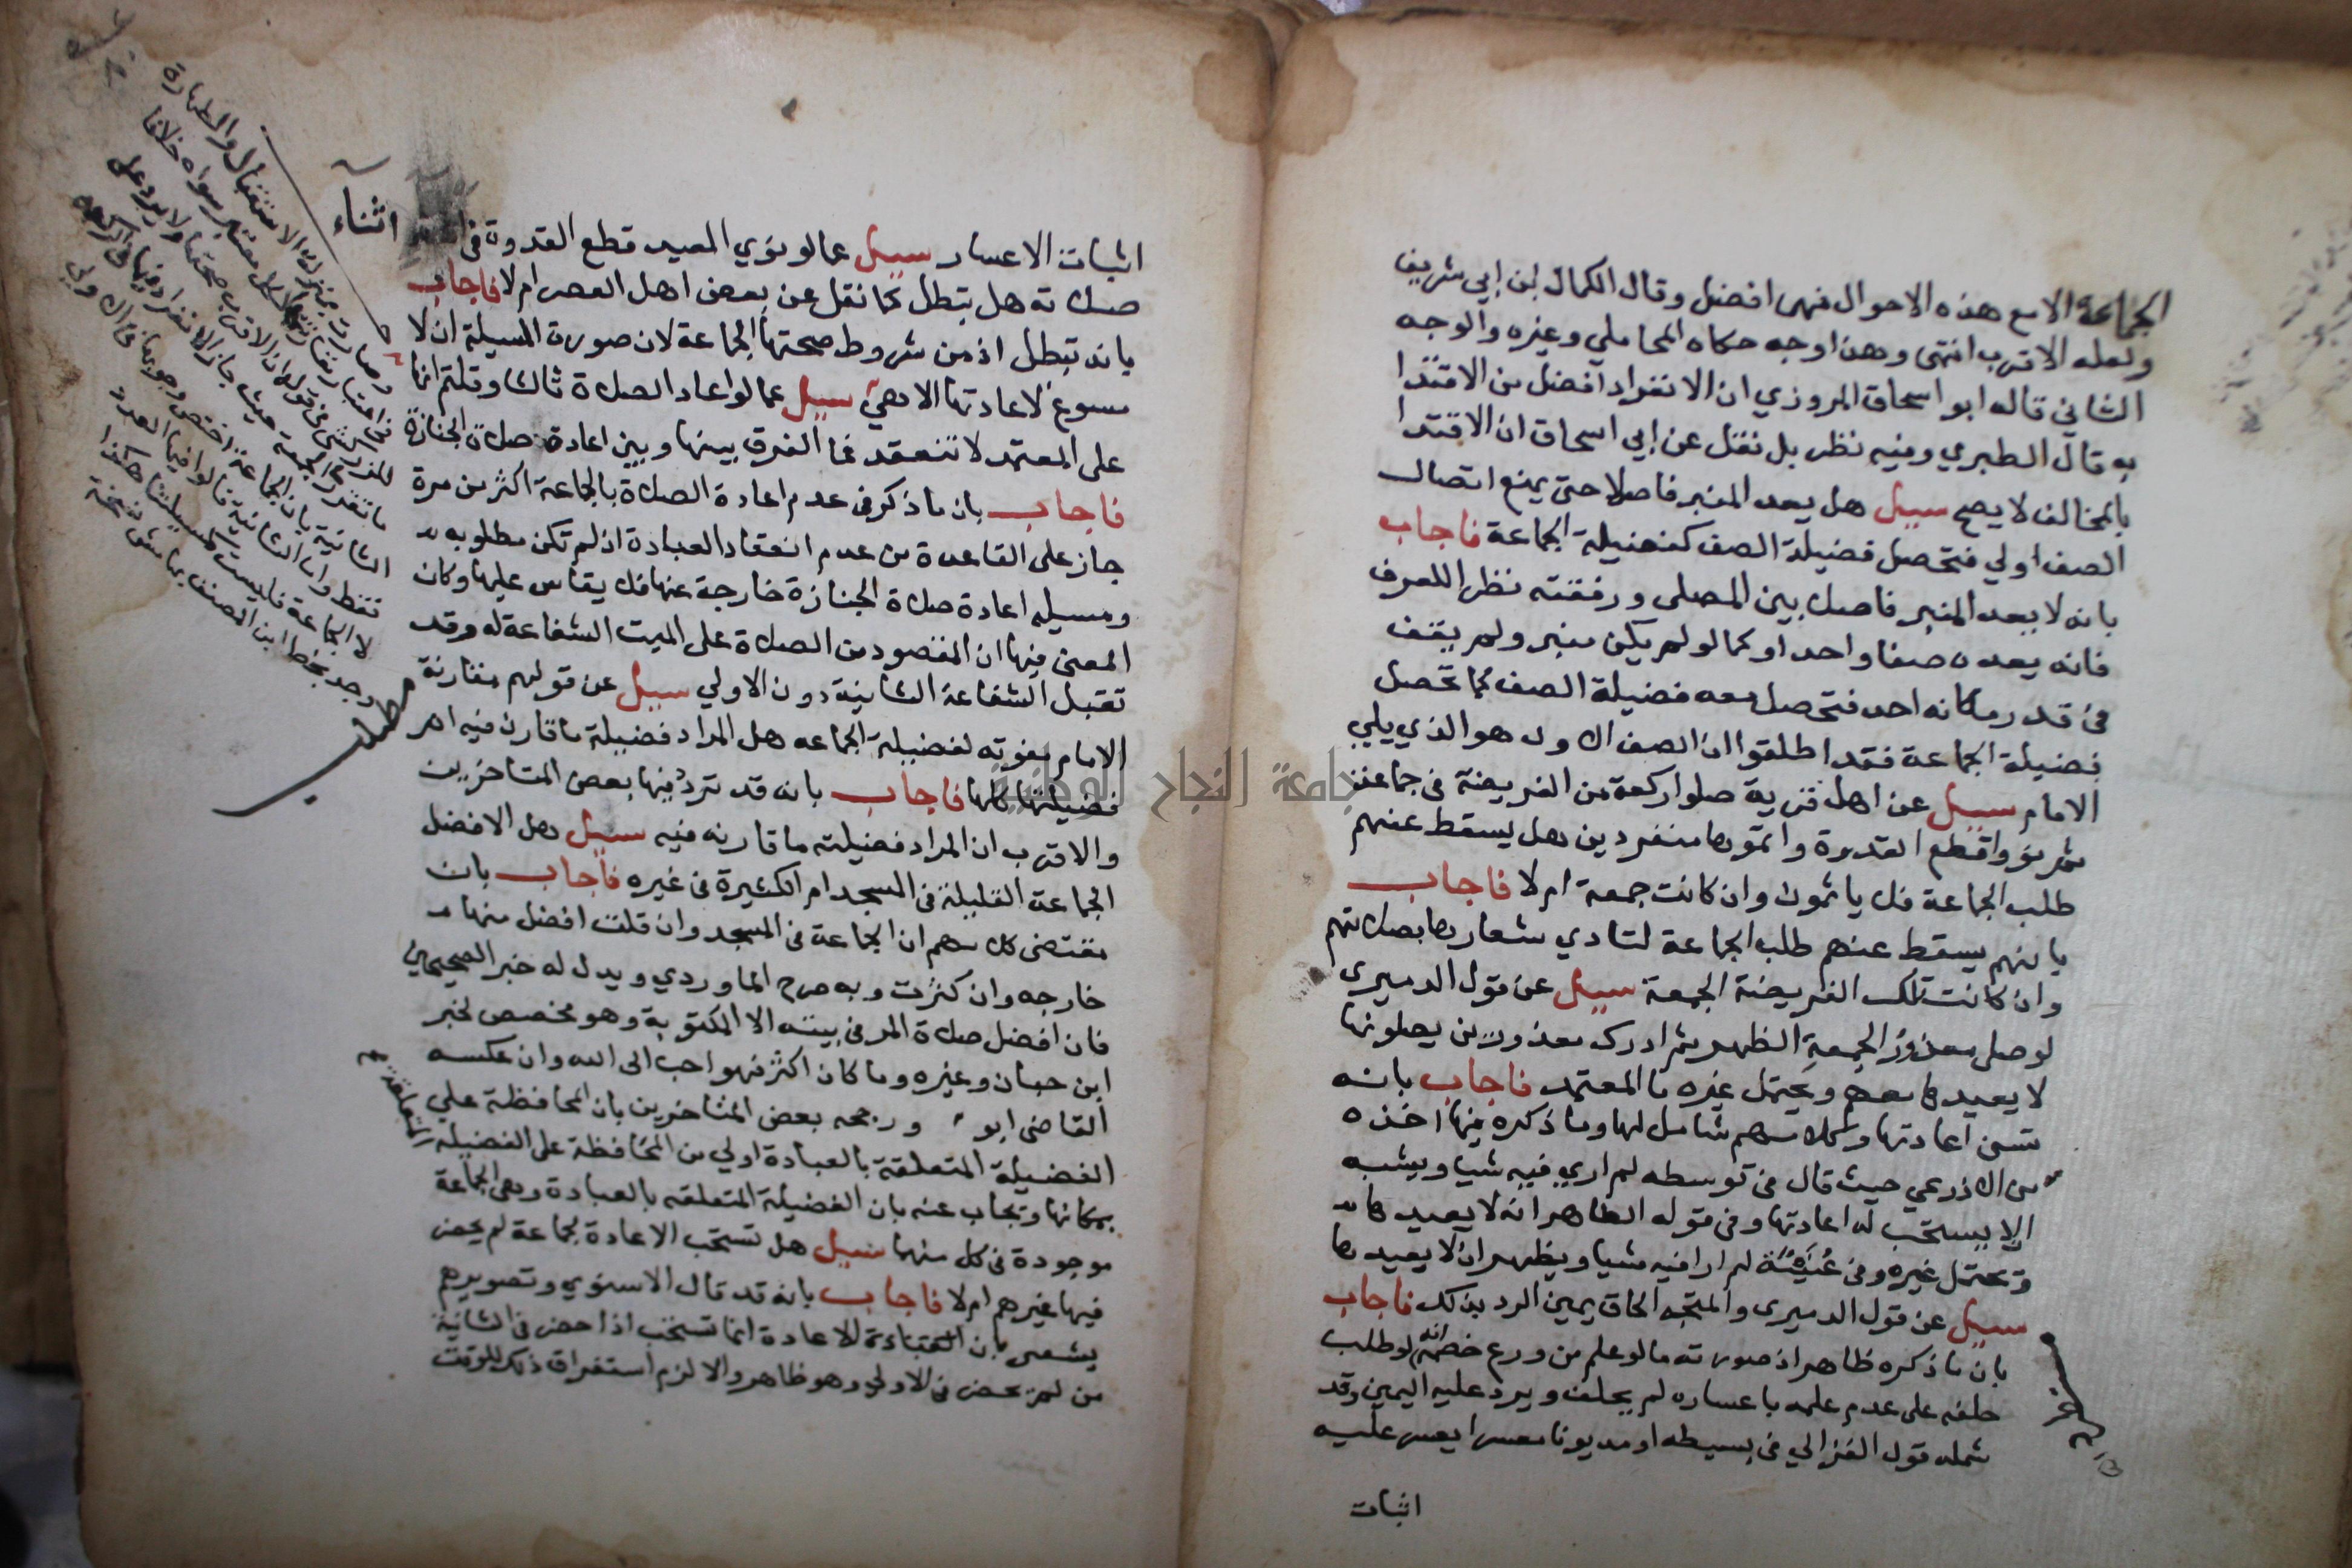 الجماعة الا مع هذه الاحوال فهى افضل وقال الكمال ابن ابي شريف
ولعله الاقرب انتهى وهذا وجه حكاه المحاملي وغيره والوجه
الثاني قاله ابو اسحاق المروزي ان الانفراد افضل من الاقتدا
به قال الطبري وفيه نظر بل نقل عن ابي اسحاق ان الاقتدا
بالمخالف لا يصح سيل هل يعد المنبر فاصلا حتى يمنع اتصال
الصف اولي فتحصل فضيلة الصف كفضيلة الجماعة فاجاب
بانه لا يعد المنبر فاصلا بين المصلى ورفقته نظرا للعرف
فانه يعده صفا واحدا وكما لو لم يكن منبر ولم يقف
في قدر مكانه احد فتحصل معه فضيلة الصف كما تحصل
فضيلة الجماعة فقد اطلقوا ان الصف الاول هو الذي يلي
الامام سيل عن اهل قرية صلوا ركعة من الفريضة في جماعة
ثم نووا قطع القدوة واتموها منفردين هل يسقط عنهم
طلب الجماعة فلا ياثمون وان كانت جمعة ام لا فاجاب
بانهم يسقط عنهم طلب الجماعة لتادي شعارها بصلاتهم
وان كانت تلك الفريضة الجمعة سيل عن قول الدميرى
لو صلى معذور الجمعة الظهر ثم ادرك معذورين يصلونها
لا يعيدها معهم ويحتمل غيره ما المعتمد فاجاب بانه
تسن اعادتها وكلامهم شامل لها وما ذكره فيها اخذه
من الاذرعي حيث قال في توسطه لم ار فيه شيا ويشبه
ان لا يستحب له اعادتها وفي قوله الظاهر انه لا يعيدها
ويحتمل غيره وفي غنيته لم ار فيه شيا ويظهر ان لا يعيدها
سيل عن قول الدميرى والمتجه الحاق يمين الرد بذلك فاجاب
بان ما ذكره ظاهر اذ صورته ما لو علم من ورع خصمه انه لو طلب
حلفه على عدم علمه باعساره لم يحلف ويرد عليه اليمين وقد
شمله قول الغزالي في بسيطه او مديونا معسرا يعسر عليه
اثبات
اثبات الاعسار سيل عما لو نوي المعيد قطع القدوة في
اثناء
صلاته هل يتطل كما نقل عن بعض اهل العصر ام لا فاجاب
بانه تبطل اذ من شروط صحتها الجماعة لان صورة المسيلة ان لا
مسوغ لاعادتها الا هي سيل عما لو اعاد الصلاة ثالثا وقلتم انها
على المعتمد لا تنعقد فما الفرق بينها وبين اعادة صلاة الجنازة
فاجاب بان ما ذكر في عدم اعادة الصلاة بالجماعة اكثر من مرة
جاز على القاعدة من عدم انعقاد العبادة اذ لم تكن مطلوبه
ومسيله اعادة صلاة الجنازة خارجة عنها فلا يقاس عليها وكان
المعنى فيها ان المقصود من الصلاة على الميت الشفاعة له وقد
تقبل الشفاعة الثانية دون الاولي سيل عن قولهم مقارنة
الامام مفوته لفضيلة الجماعه هل المراد فضيلة ما قارن فيه ام
فضيلتها كلها فاجاب بانه قد تردد فيها بعض المتاخرين
والاقرب ان المراد فضيلته ما قارنه فيه سيل هل الافضل
الجماعة القليلة في المسجد ام الكثيرة في غيره فاجاب بان
مقتضى كلامهم ان الجماعة في المسجد وان قلت افضل منها
خارجه وان كثرت وبه صرح الماوردي ويدل له خبر الصحيحين
فان افضل صلاة المرء في بيته الا المكتوبة وهو مخصص لخبر
ابن حبان وغيره وما كان اكثر فهو احب الى الله وان عكسه
القاضى ابو ورجحه بعض المتاخرين بان المحافظة علي
الفضيلة المتعلقة بالعبادة اولي من المحافظة على الفضيلة المتعلقة
بمكانها ويجاب عنه بان الفضيلة المتعلقه بالعبادة وهي الجماعة
موجودة في كل منهما سيل هل تستحب الاعادة لجماعة لم يحضر
فيها غيرهم ام لا فاجاب بانه قد قال الاسنوي وتصويرهم
يشعر بان الاعادة انما تستحب اذا حضر في الثانية
من لم يحضر في الاولي وهو ظاهر والا لزم استغراق ذلك للوقت
وصارت بمنزلة الاستقبال والطهارة
وجد بخط ابن المصنف بهامش نسخة
مطلب
جامعة النجاح الوطنية